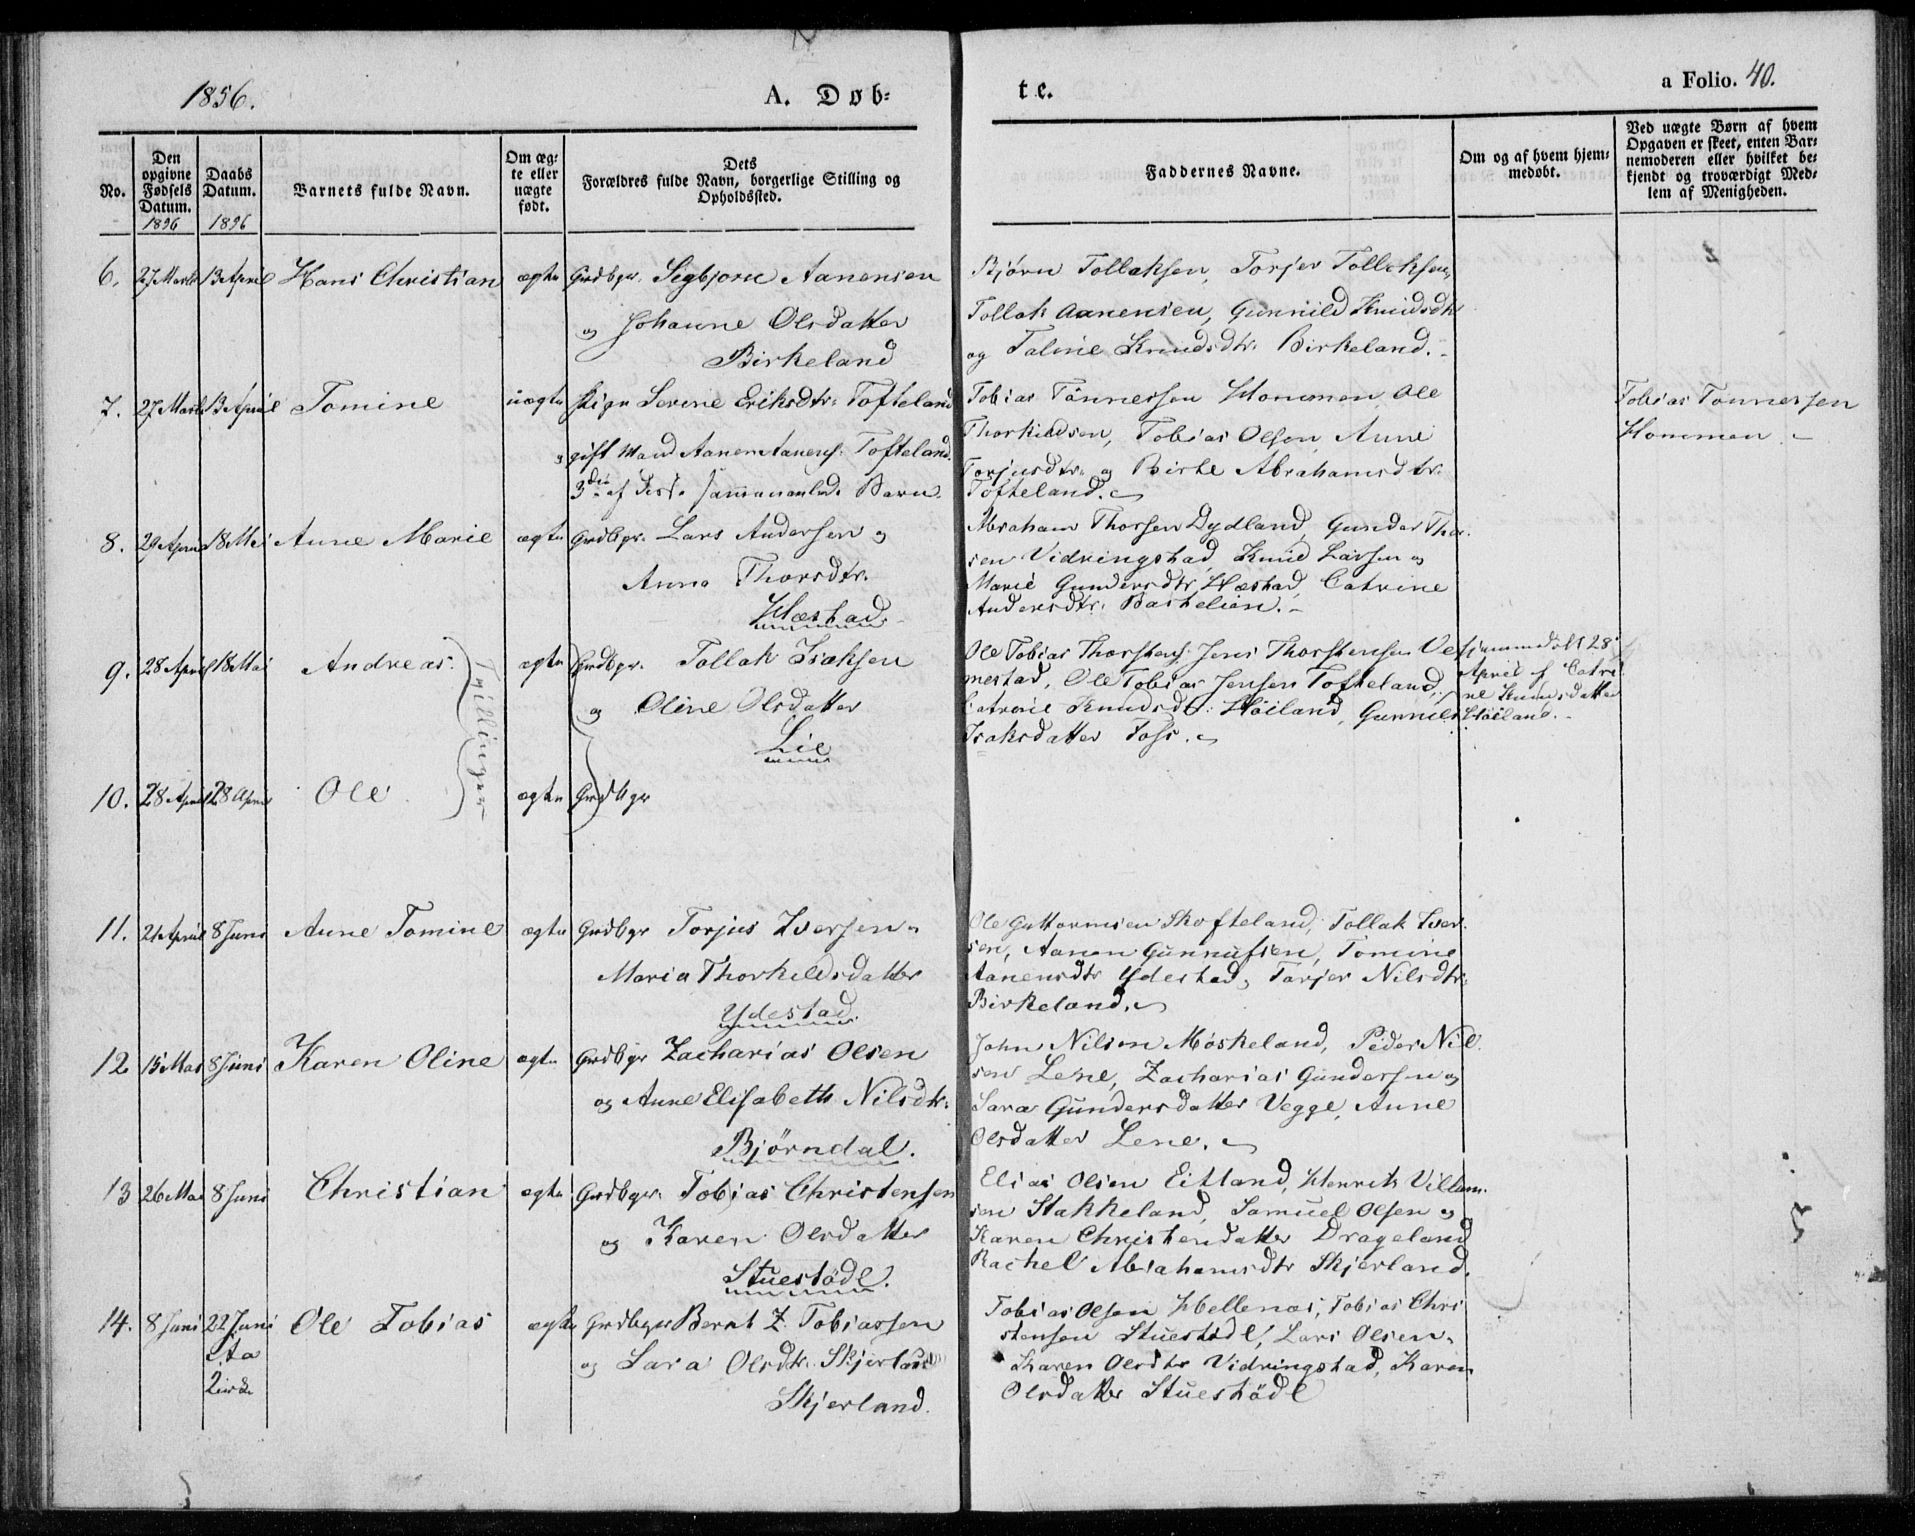 1856.
A. Døb=
te.
a Folio. 40.
No.
Den
opgivne
Fødsels
Datum.
1856
Daabs
Datum.
1856
Barnets fulde Navn.
Om æg=
te eller
uægte
født.
Dets
Forældres fulde Navn, borgerlige Stilling og
Opholdssted.
Faddernes Navne.
Om og af hvem hjem=
medøbt.
Ved uægte Børn af hvem
Opgaven er skeet, enten Bar=
nemoderen eller hvilket be=
kjendt og troværdigt Med=
lem af Menigheden.
6. 27 Marts 13 April Hans Christian ægte Grdbgr. Sigbjørn Aanensen
og Johanne Olsdatter
Birkeland
Bjørn Tollaksen, Torjer Tollaksen,
Tollak Aanensen, Gunnild Knudsdtr
og Taline Knudsdtr. Birkeland.
7. 27 Marts 13 April Tomine uægte Pige Serine Eriksdtr. Tofteland
gift Mand Aanen Aanens. Tofteland.
3die af disse sammenavlede Børn.
Tobias Tönnessen Hommen, Ole
Thorkildsen, Tobias Olsen, Anne
Torjusdtr. og Birte Abrahamsdtr.
Tofteland.
Tobias Tönnessen
Hommen.
8. 29 April 18 Mai Anne Marie ægte Grdbgr. Lars Andersen og
Anna Thorsdtr.
Hæstad
Abraham Thorsen Dydland, Gunder Thor=
sen Vidringstad, Knud Larsen og
Marie Gundersdtr Hæstad, Catrine
Andersdtr. Bastelien.
9. 28 April 18 Mai Andreas. ægte Grdbgr. Tollak Isaksen
og Oline Olsdatter
Lie
Tvillinger
Ole Tobias Thorstens. Jens Thorstensen Ve=
mestad, Ole Tobias Jensen Tofteland,
Catrine Knudsdtr. Höiland, Gunnild
Isaksdatter Foss.
Hjemmedöbt 28
April af Catri=
ne Knudsdatter
Höiland.
10. 28 April 28 April Ole ægte Grdbgr
11. 21 April 8 Juni Anne Tomine ægte Grdbgr Torjus Iversen
Maria Thorkildsdatter
Ydestad.
Ole Guttormsen Skofteland, Tollak Iver=
sen, Aanen Gunnufsen, Tomine
Aanensdtr Ydestad, Torjer Nilsdtr.
Birkeland.
12 15 Mai 8 Juni Karen Oline ægte Grdbgr Zacharias Olsen
og Anne Elisabeth Nilsdtr.
Bjørndal.
John Nilsen Møskeland, Peder Nil=
sen Lene, Zacharias Gundersen og
Sara Gundersdatter Vegge, Anne
Olsdatter Lene.
13 26 Mai 8 Juni Christian ægte Grdbgr. Tobias Christensen
og Karen Olsdatter
Stuestödl.
Elias Olsen Eitland, Henrik Villum=
sen Stakkeland, Samuel Olsen og
Karen Christensdatter Drageland
Rachel Abrahamsdtr Skjerland.
14. 8 Juni 22 Juni Ole Tobias ægte Grdbgr Bernt Z. Tobiassen
og Sara Olsdtr. Skjerland
Skjerland.
Tobias Olsen Hellenæs, Tobias Chri
stensen Stuestödl, Lars Olsen,
Karen Olsdtr Vidringstad, Karen
Olsdatter Stuestödl